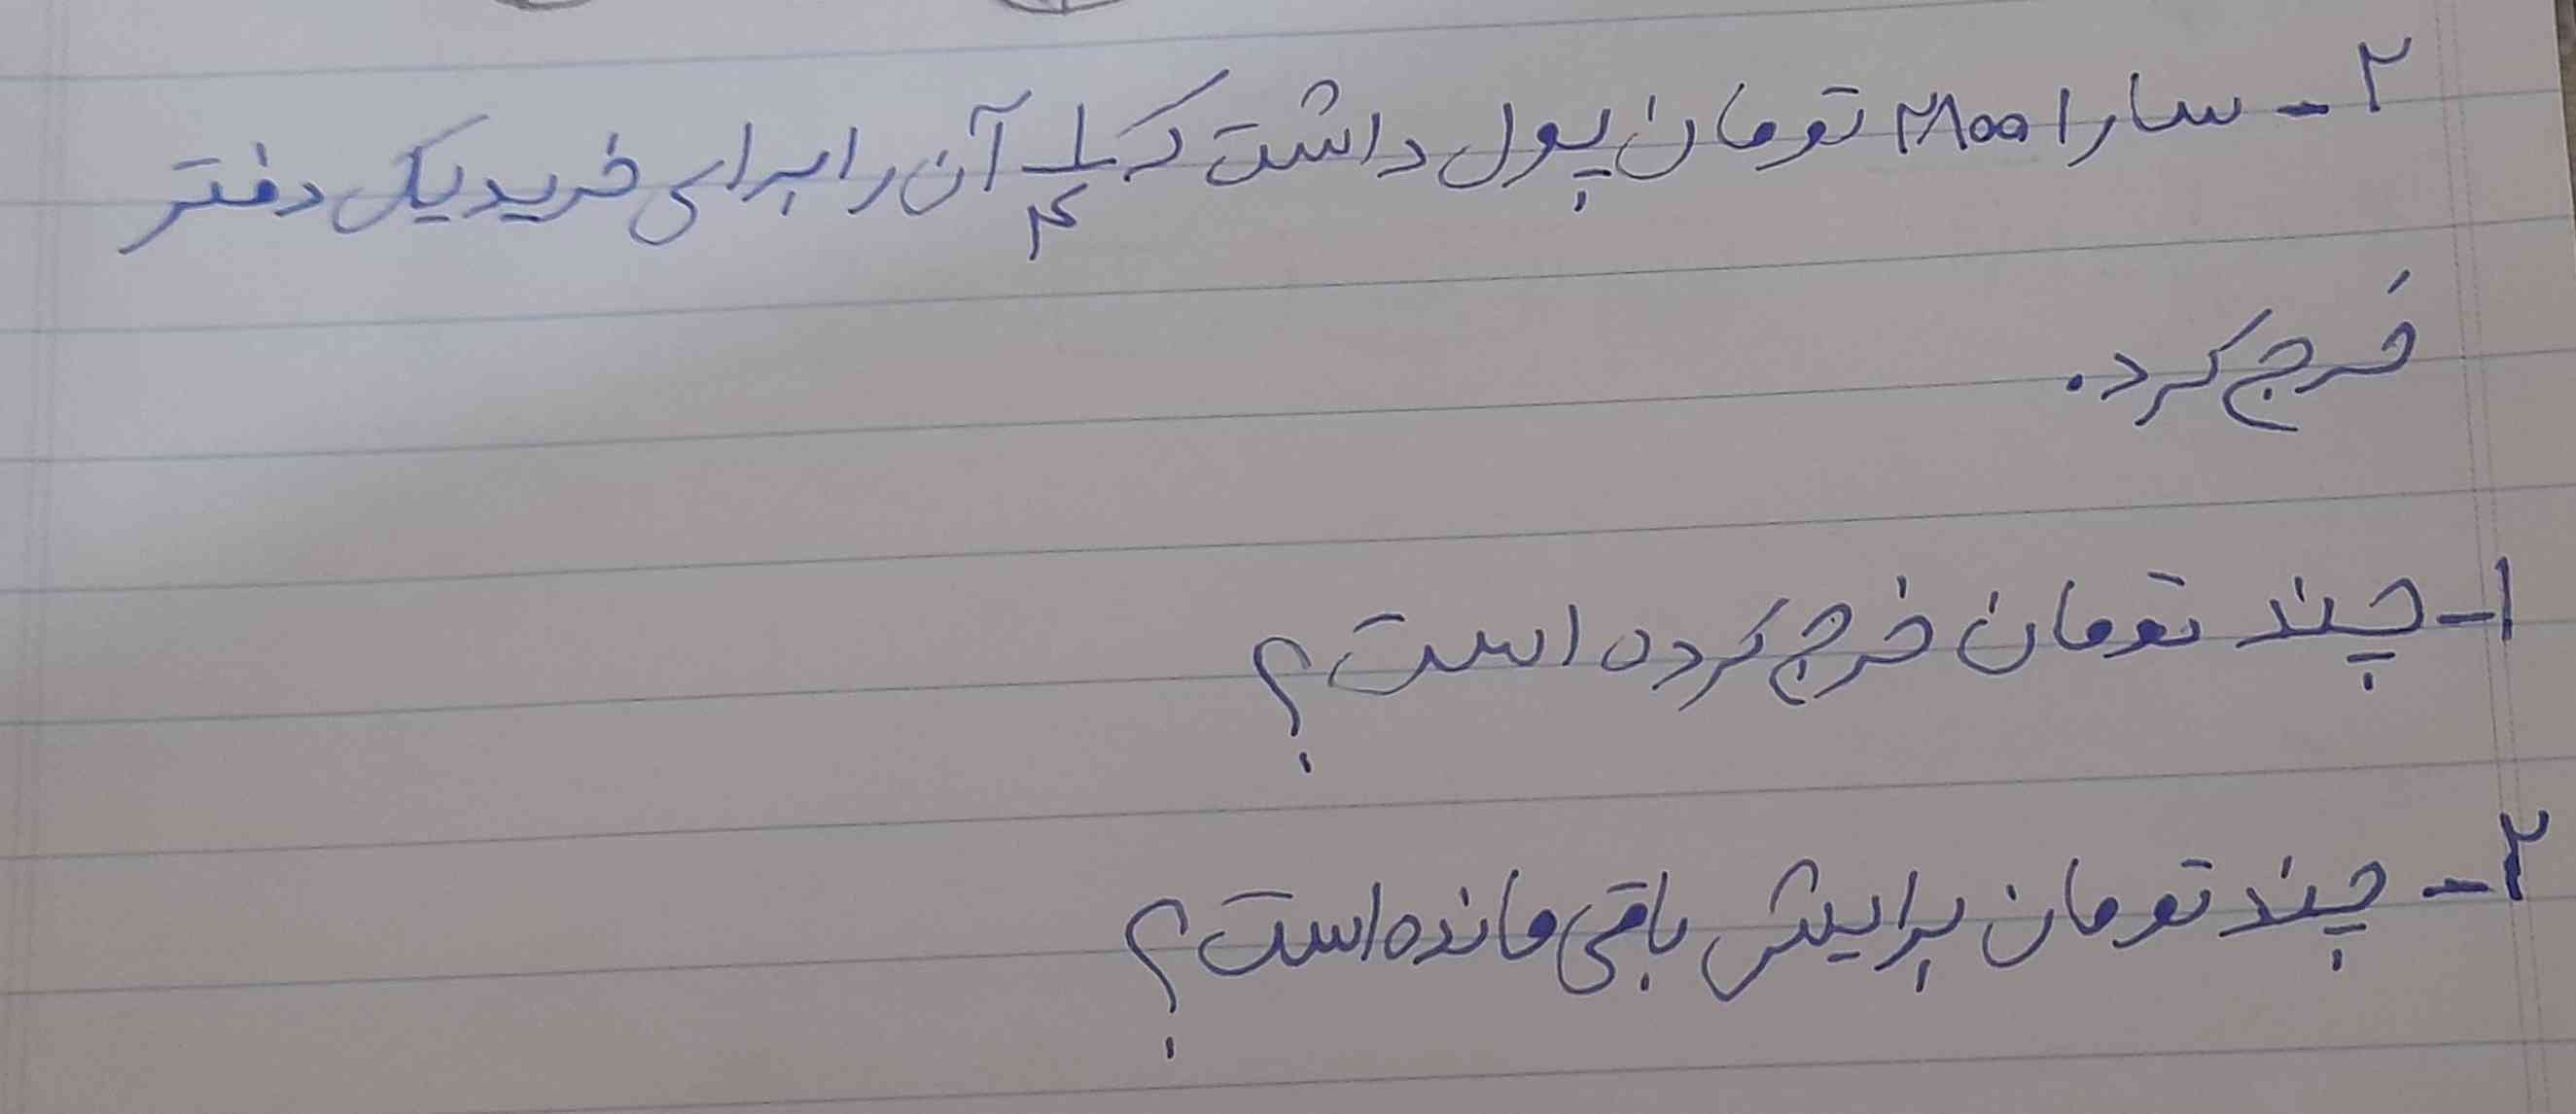 ۲- سارا ۲۸۰۰ تومان پول داشت که ۱/۴ آن را برای خرید یک دفتر
خرج کرد.
۱- چند تومان خرج کرده است؟
۲- چند تومان برایش باقی مانده است؟